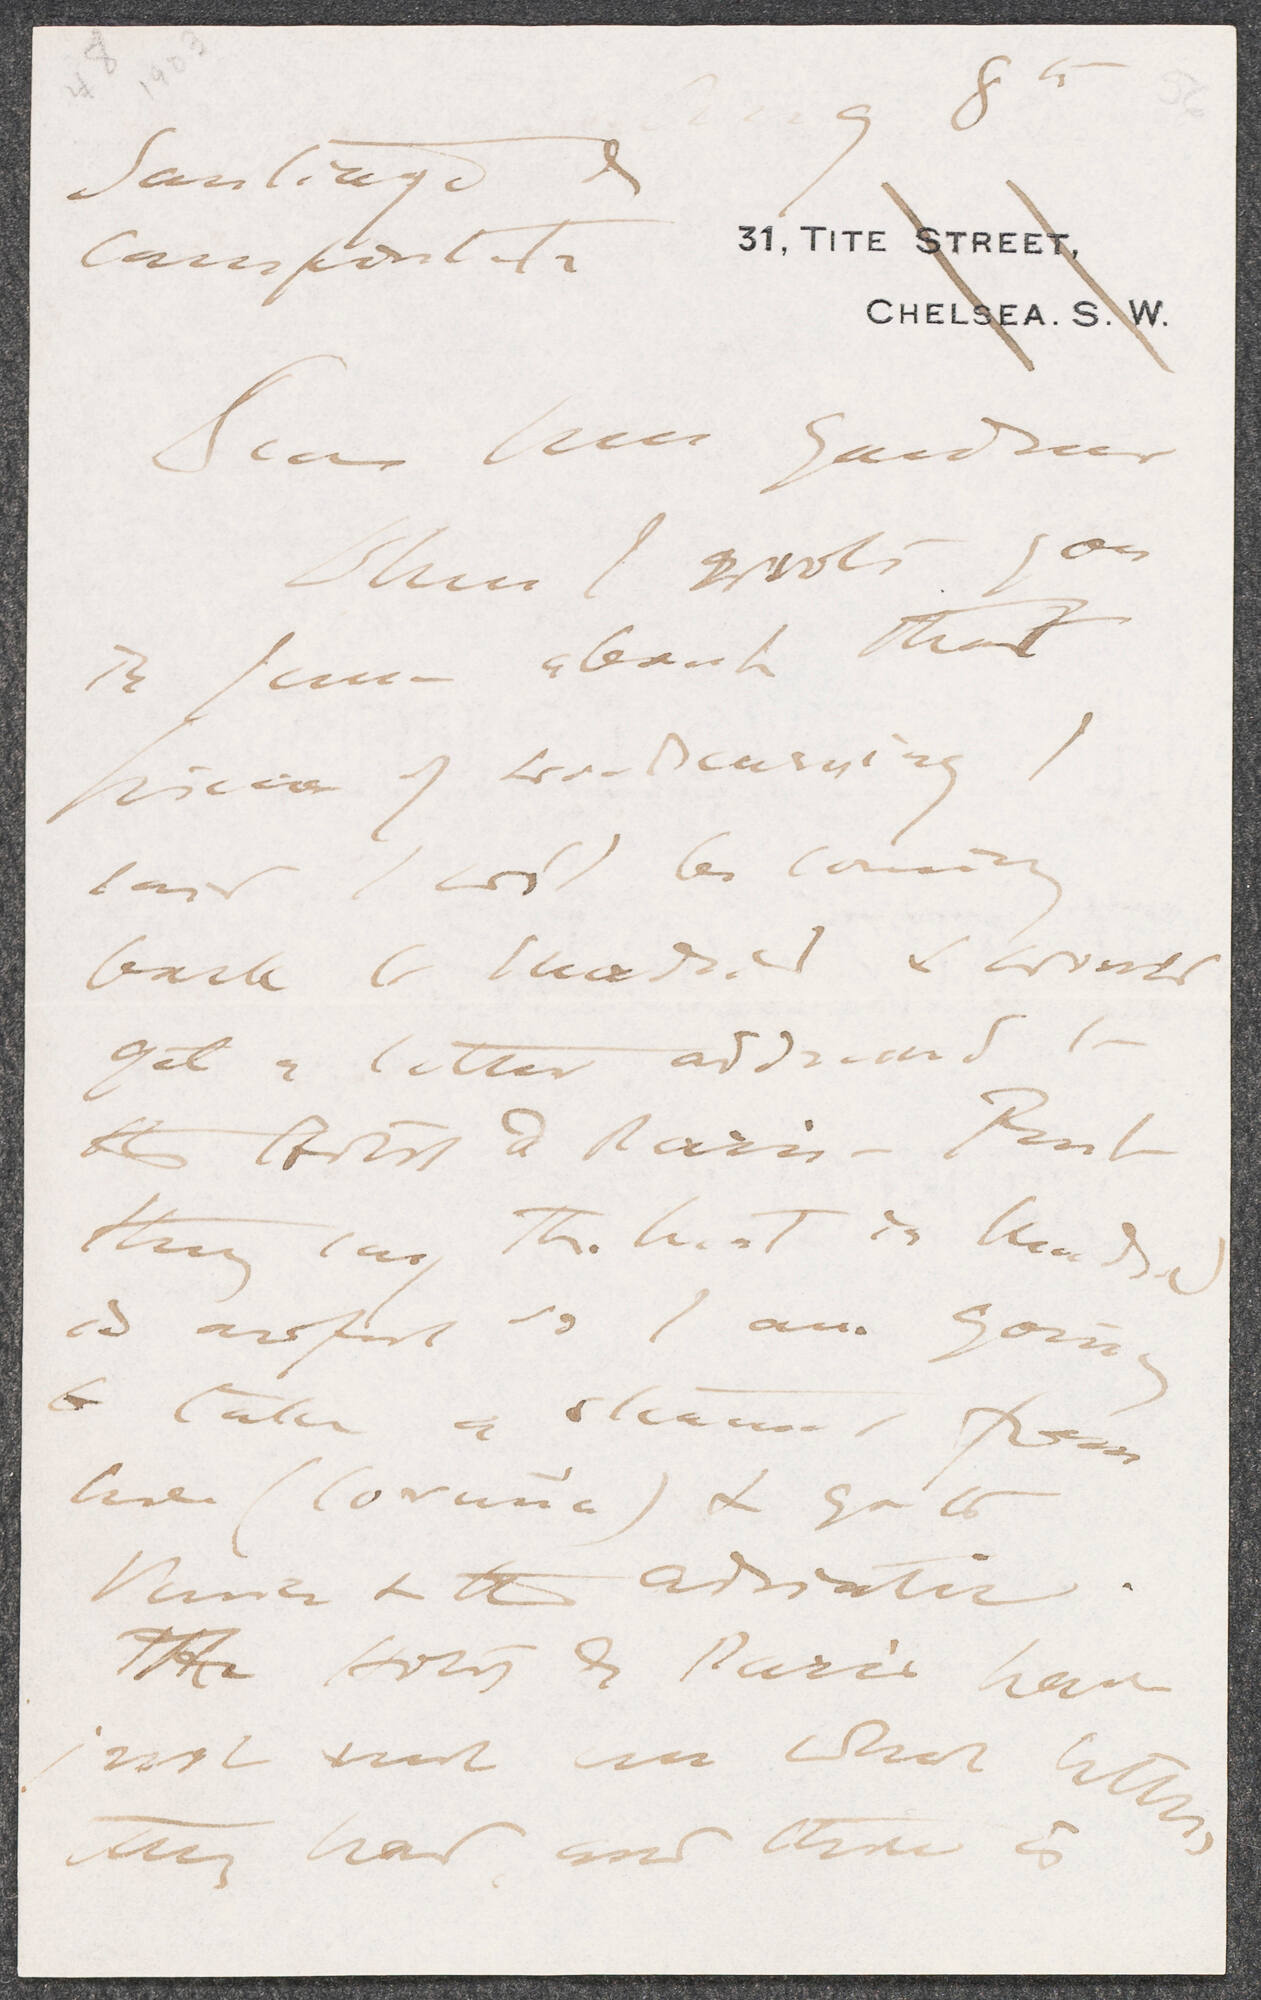 48
1903
56
Aug 8th
Santiago de
Compostela
31, TITE STREET,
CHELSEA. S. W.
Dear Mrs Gardner
When I wrote you
in June about that
piece of woodcarving I
said I wd be coming
back to Madrid & would
get a letter addressed to
the Hotel de Paris – But
they say the heat in Madrid
is awful so I am going
to take a steamer from
here (Coruña) & go to
Venice & the Adriatic.
The Hotel de Paris have
just sent me what letters
they had, and there is